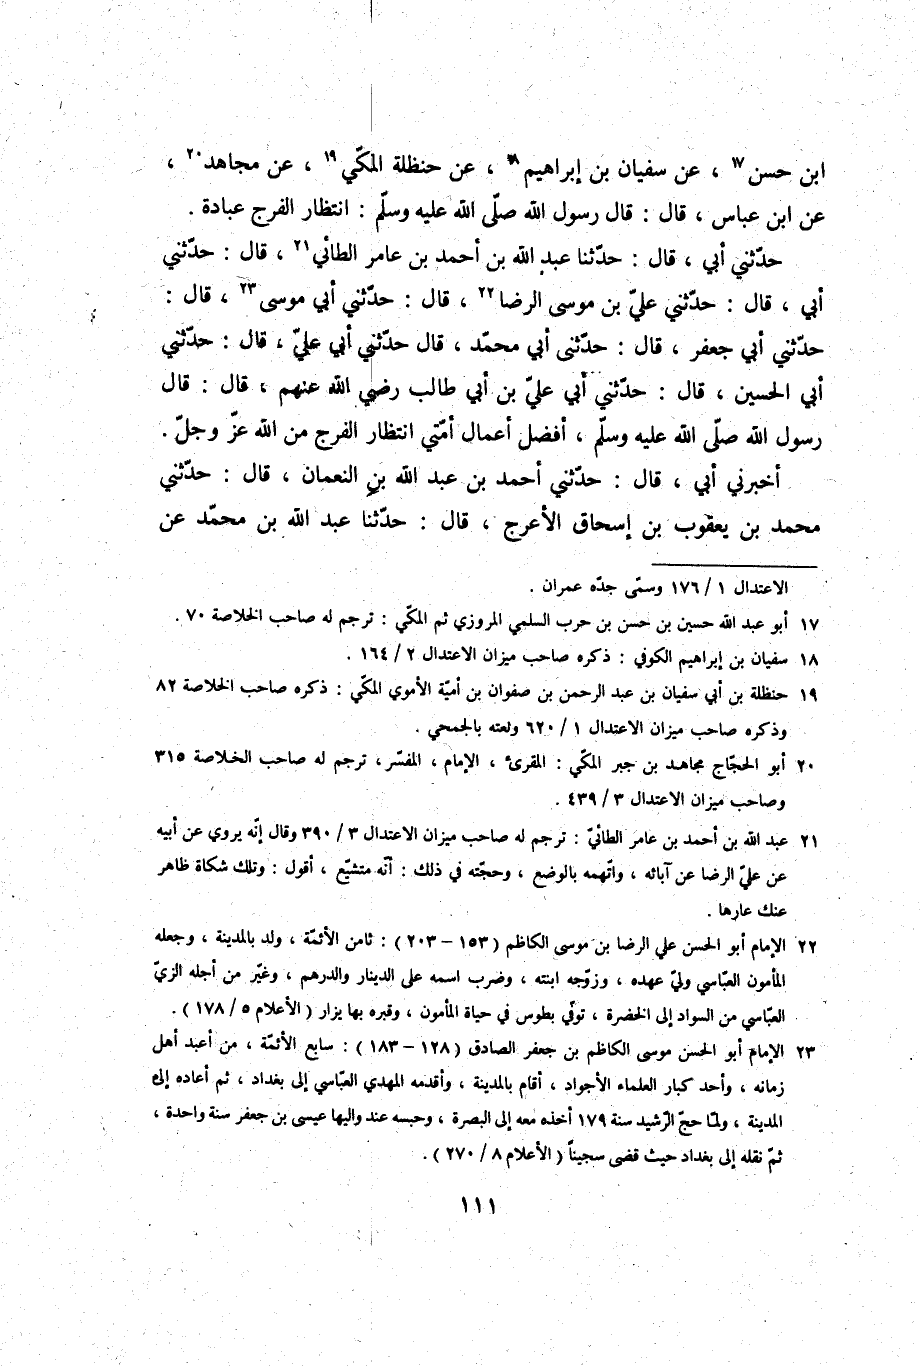 ابن حسن١٧ ، عن سفيان بن إبراهيم١٨ ، عن حنظلة المكّي١٩ ، عن مجاهد٢٠ ،
عن ابن عباس ، قال : قال رسول الله صلّى الله عليه وسلّم : انتظار الفرج عبادة .
حدّثني أبي ، قال : حدّثنا عبد الله بن أحمد بن عامر الطائي٢١ ، قال : حدّثني
أبي ، قال : حدّثني عليّ بن موسى الرضا٢٢ ، قال : حدّثني أبي موسى٢٣ ، قال :
حدّثني أبي جعفر ، قال : حدّثنى أبي محمّد ، قال حدّثني أبي عليّ ، قال : حدّثني
أبي الحسين ، قال : حدّثني أبي عليّ بن أبي طالب رضي الله عنهم ، قال : قال
رسول الله صلّى الله عليه وسلّم ، أفضل أعمال أمّتي انتظار الفرج من الله عزّ وجلّ .
أخبرني أبي ، قال : حدّثني أحمد بن عبد الله بن النعمان ، قال : حدّثني
محمد بن يعقوب بن إسحاق الأعرج ، قال : حدّثنا عبد الله بن محمّد عن
الاعتدال ١ / ١٧٦ وسمّى جدّه عمران .
١٧ أبو عبد الله حسين بن حسن بن حرب السلمي المروزي ثم المكّي : ترجم له صاحب الخلاصة ٧٠ .
١٨ سفيان بن إبراهيم الكوفي : ذكره صاحب ميزان الاعتدال ٢ / ١٦٤ .
١٩ حنظلة بن أبي سفيان بن عبد الرحمن بن صفوان بن أميّة الأموي المكّي : ذكره صاحب الخلاصة ٨٢
وذكره صاحب ميزان الاعتدال ١ / ٦٢٠ ونعته بالجمحي .
٢٠ أبو الحجّاج مجاهد بن جبر المكّي : المقرئ ، الإمام ، المفسّر ، ترجم له صاحب الخلاصة ٣١٥
وصاحب ميزان الاعتدال ٣ / ٤٣٩ .
٢١ عبد الله بن أحمد بن عامر الطائيّ : ترجم له صاحب ميزان الاعتدال ٣ / ٣٩٠ وقال إنّه يروي عن أبيه
عن عليّ الرضا عن آبائه ، واتّهمه بالوضع ، وحجّته في ذلك : أنّه متشيّع ، أقول : وتلك شكاة ظاهر
عنك عارها .
٢٢ الإمام أبو الحسن علي الرضا بن موسى الكاظم ( ١٥٣ – ٢٠٣ ) : ثامن الأئمّة ، ولد بالمدينة ، وجعله
المأمون العبّاسي وليّ عهده ، وزوّجه ابنته ، وضرب اسمه على الدينار والدرهم ، وغيّر من أجله الزيّ
العبّاسي من السواد إلى الخضرة ، توفّي بطوس في حياة المأمون ، وقبره بها يزار ( الأعلام ٥ / ١٧٨ ) .
٢٣ الإمام أبو الحسن موسى الكاظم بن جعفر الصادق ( ١٢٨ – ١٨٣ ) : سابع الأئمّة ، من أعبد أهل
زمانه ، وأحد كبار العلماء الأجواد ، أقام بالمدينة ، وأقدمه المهدي العبّاسي إلى بغداد ، ثم أعاده إلى
المدينة ، ولمّا حجّ الرّشيد سنة ١٧٩ أخذه معه إلى البصرة ، وحبسه عند واليها عيسى بن جعفر سنة واحدة ،
ثمّ نقله إلى بغداد حيث قضى سجيناً ( الأعلام ٨ / ٢٧٠ ) .
١١١